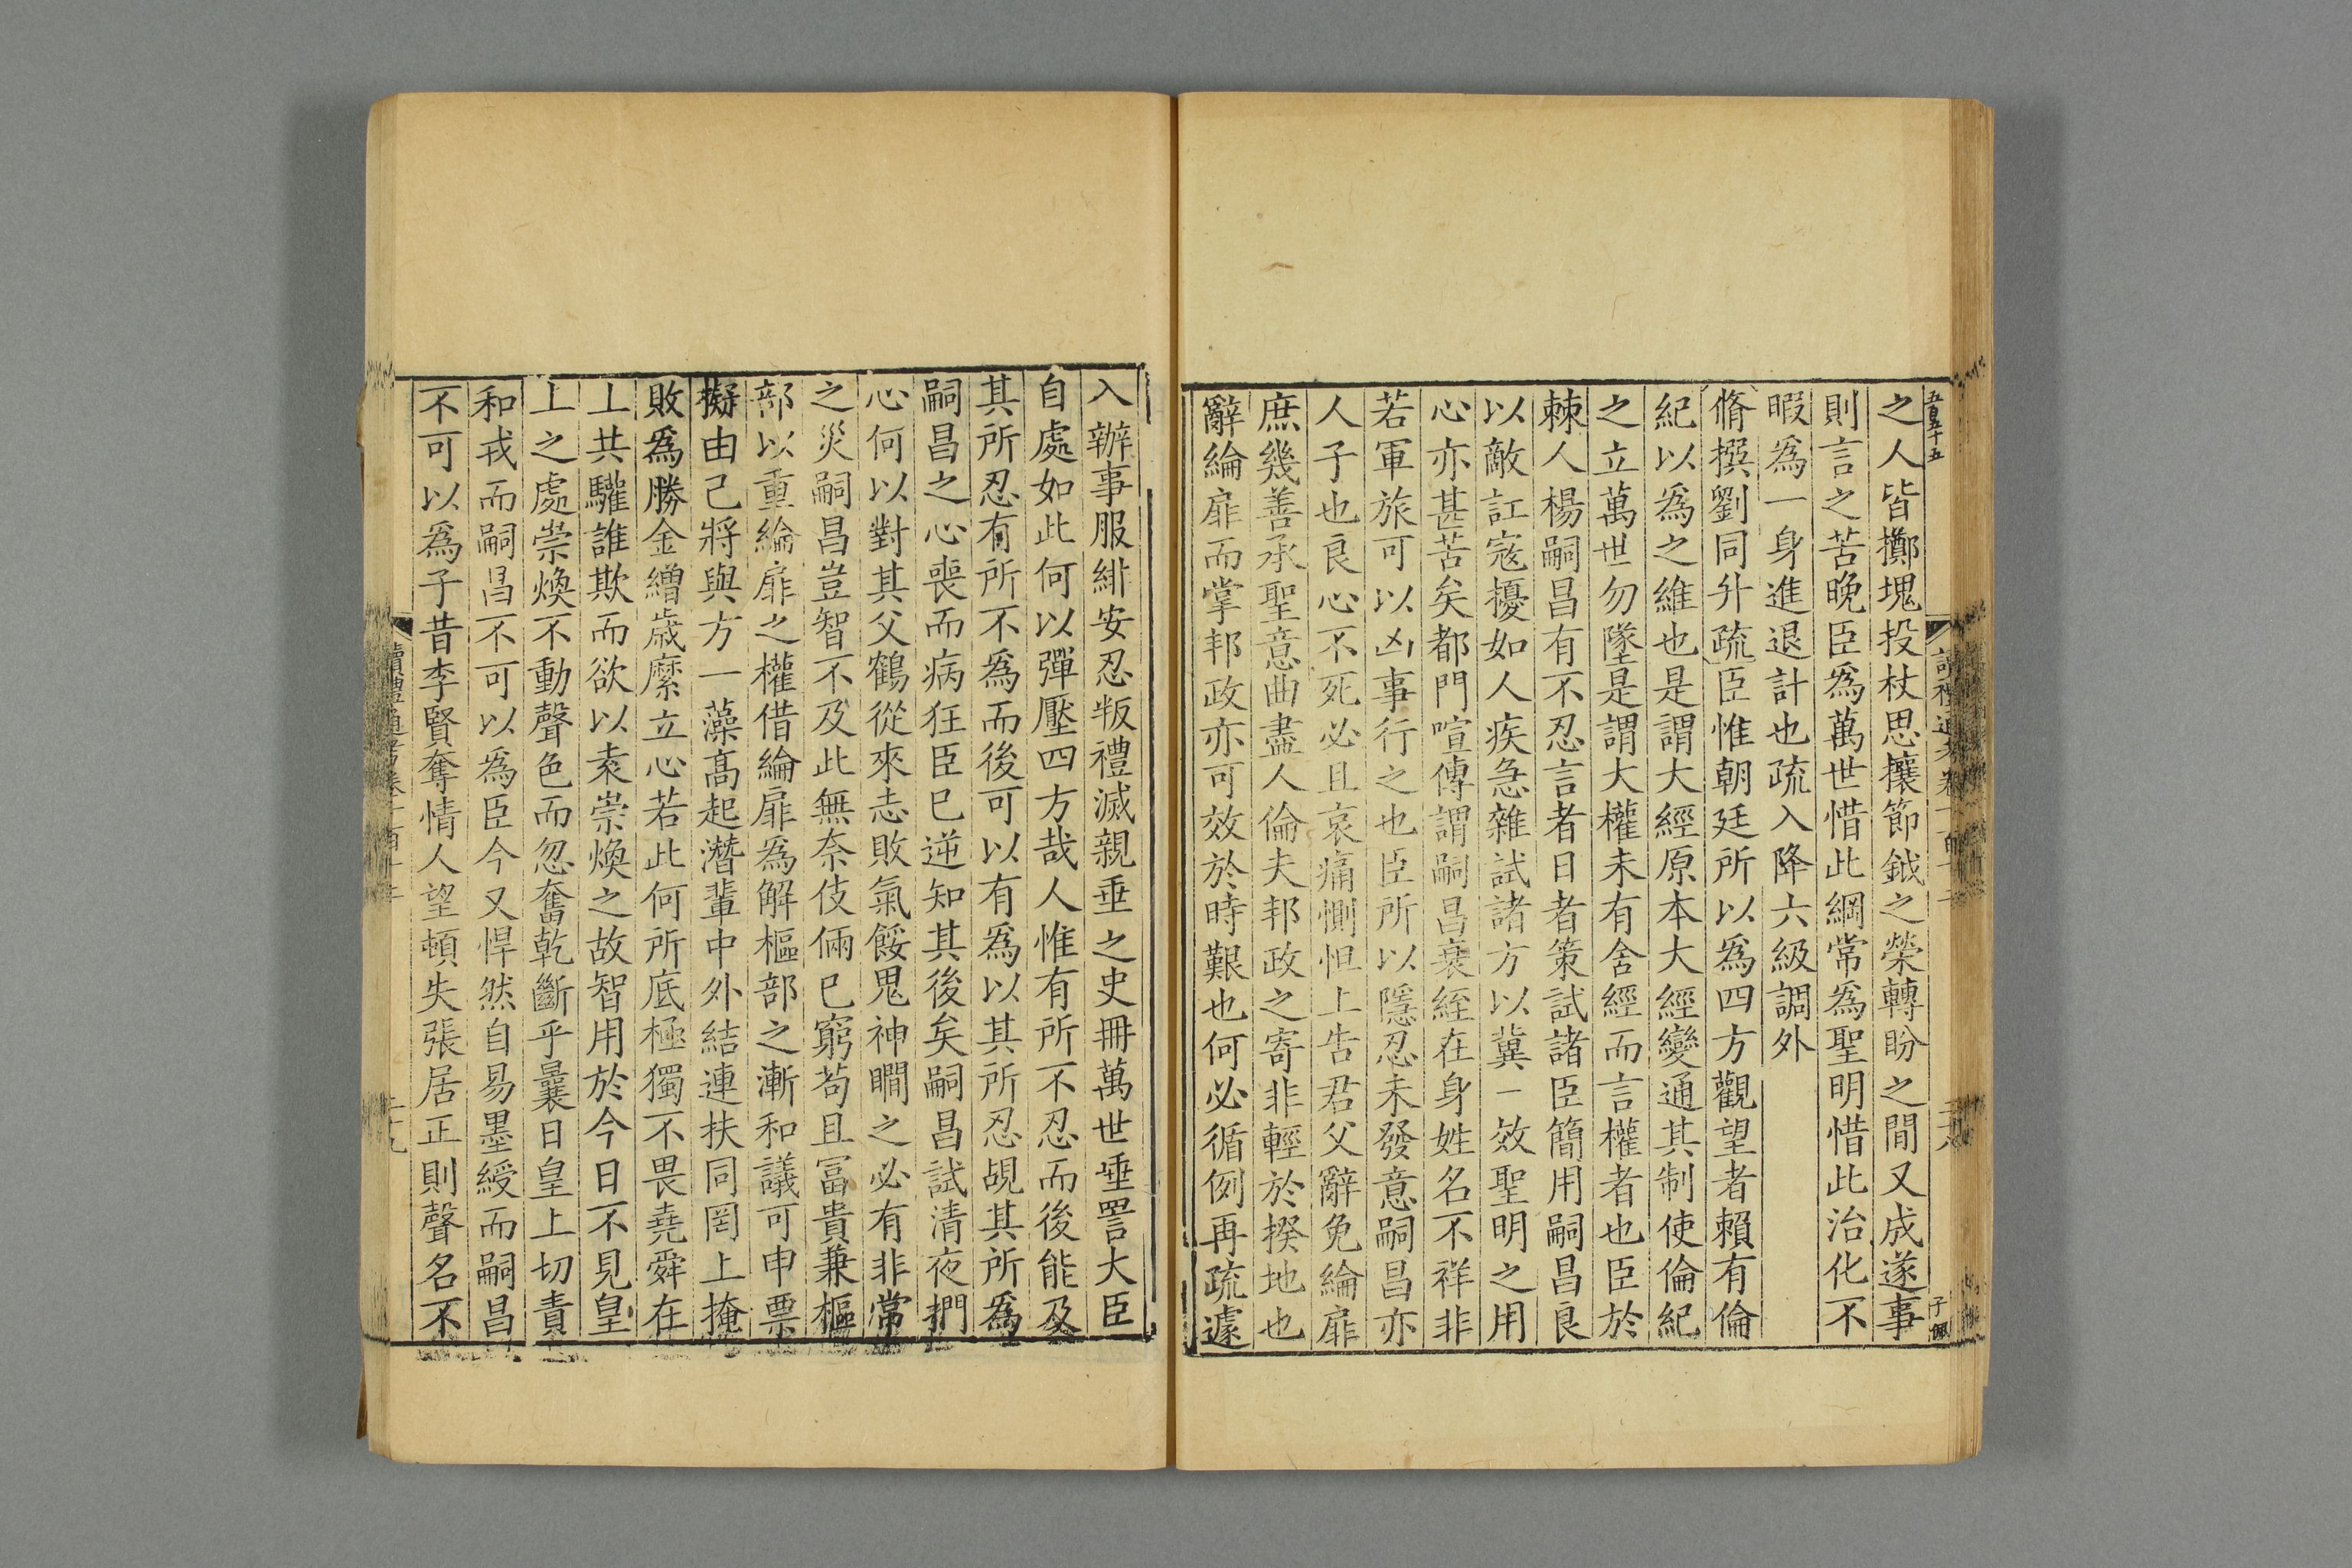 五百五十五
之人皆擲塊投杖思攘節鉞之榮轉盼之間又成遂事
則言之苦晚臣爲萬世惜此綱常爲聖明惜此治化不
暇爲一身進退計也疏入降六級調外
脩撰劉同升疏臣惟朝廷所以爲四方觀望者賴有倫
紀以爲之維也是謂大經原本大經變通其制使倫紀
之立萬世勿墜是謂大權未有舍經而言權者也臣於
棘人楊嗣昌有不忍言者日者策試諸臣簡用嗣昌良
以敵訌寇擾如人疾急雜試諸方以冀一效聖明之用
心亦甚苦矣都門喧傳謂嗣昌衰絰在身姓名不祥非
若軍旅可以凶事行之也臣所以隱忍未發意嗣昌亦
人子也良心不死必且哀痛惻怛上告君父辭免綸扉
庶幾善承聖意曲盡人倫夫邦政之寄非輕於揆地也
辭綸扉而掌邦政亦可效於時艱也何必循例再疏遽
讀禮通考卷一百十
子佩
入辦事服緋安忍叛禮滅親垂之史冊萬世唾詈大臣
自處如此何以彈壓四方哉人惟有所不忍而後能及
其所忍有所不爲而後可以有爲以其所忍覘其所爲
嗣昌之心喪而病狂臣已逆知其後矣嗣昌試清夜捫
心何以對其父鶴從來志敗氣餒鬼神瞷之必有非常
之災嗣昌豈智不及此無奈伎倆已窮茍且富貴兼樞
部以重綸扉之權借綸扉爲解樞部之漸和議可申票
擬由己將與方一藻高起潛輩中外結連扶同罔上掩
敗爲勝金繒歲縻立心若此何所底極獨不畏堯舜在
上共驩誰欺而欲以袁崇煥之故智用於今日不見皇
上之處崇煥不動聲色而忽奮乾斷乎曩日皇上切責
和戎而嗣昌不可以爲臣今又悍然自易墨綬而嗣昌
不可以爲子昔李賢奪情人望頓失張居正則聲名不
讀禮通考卷一百十
二十九